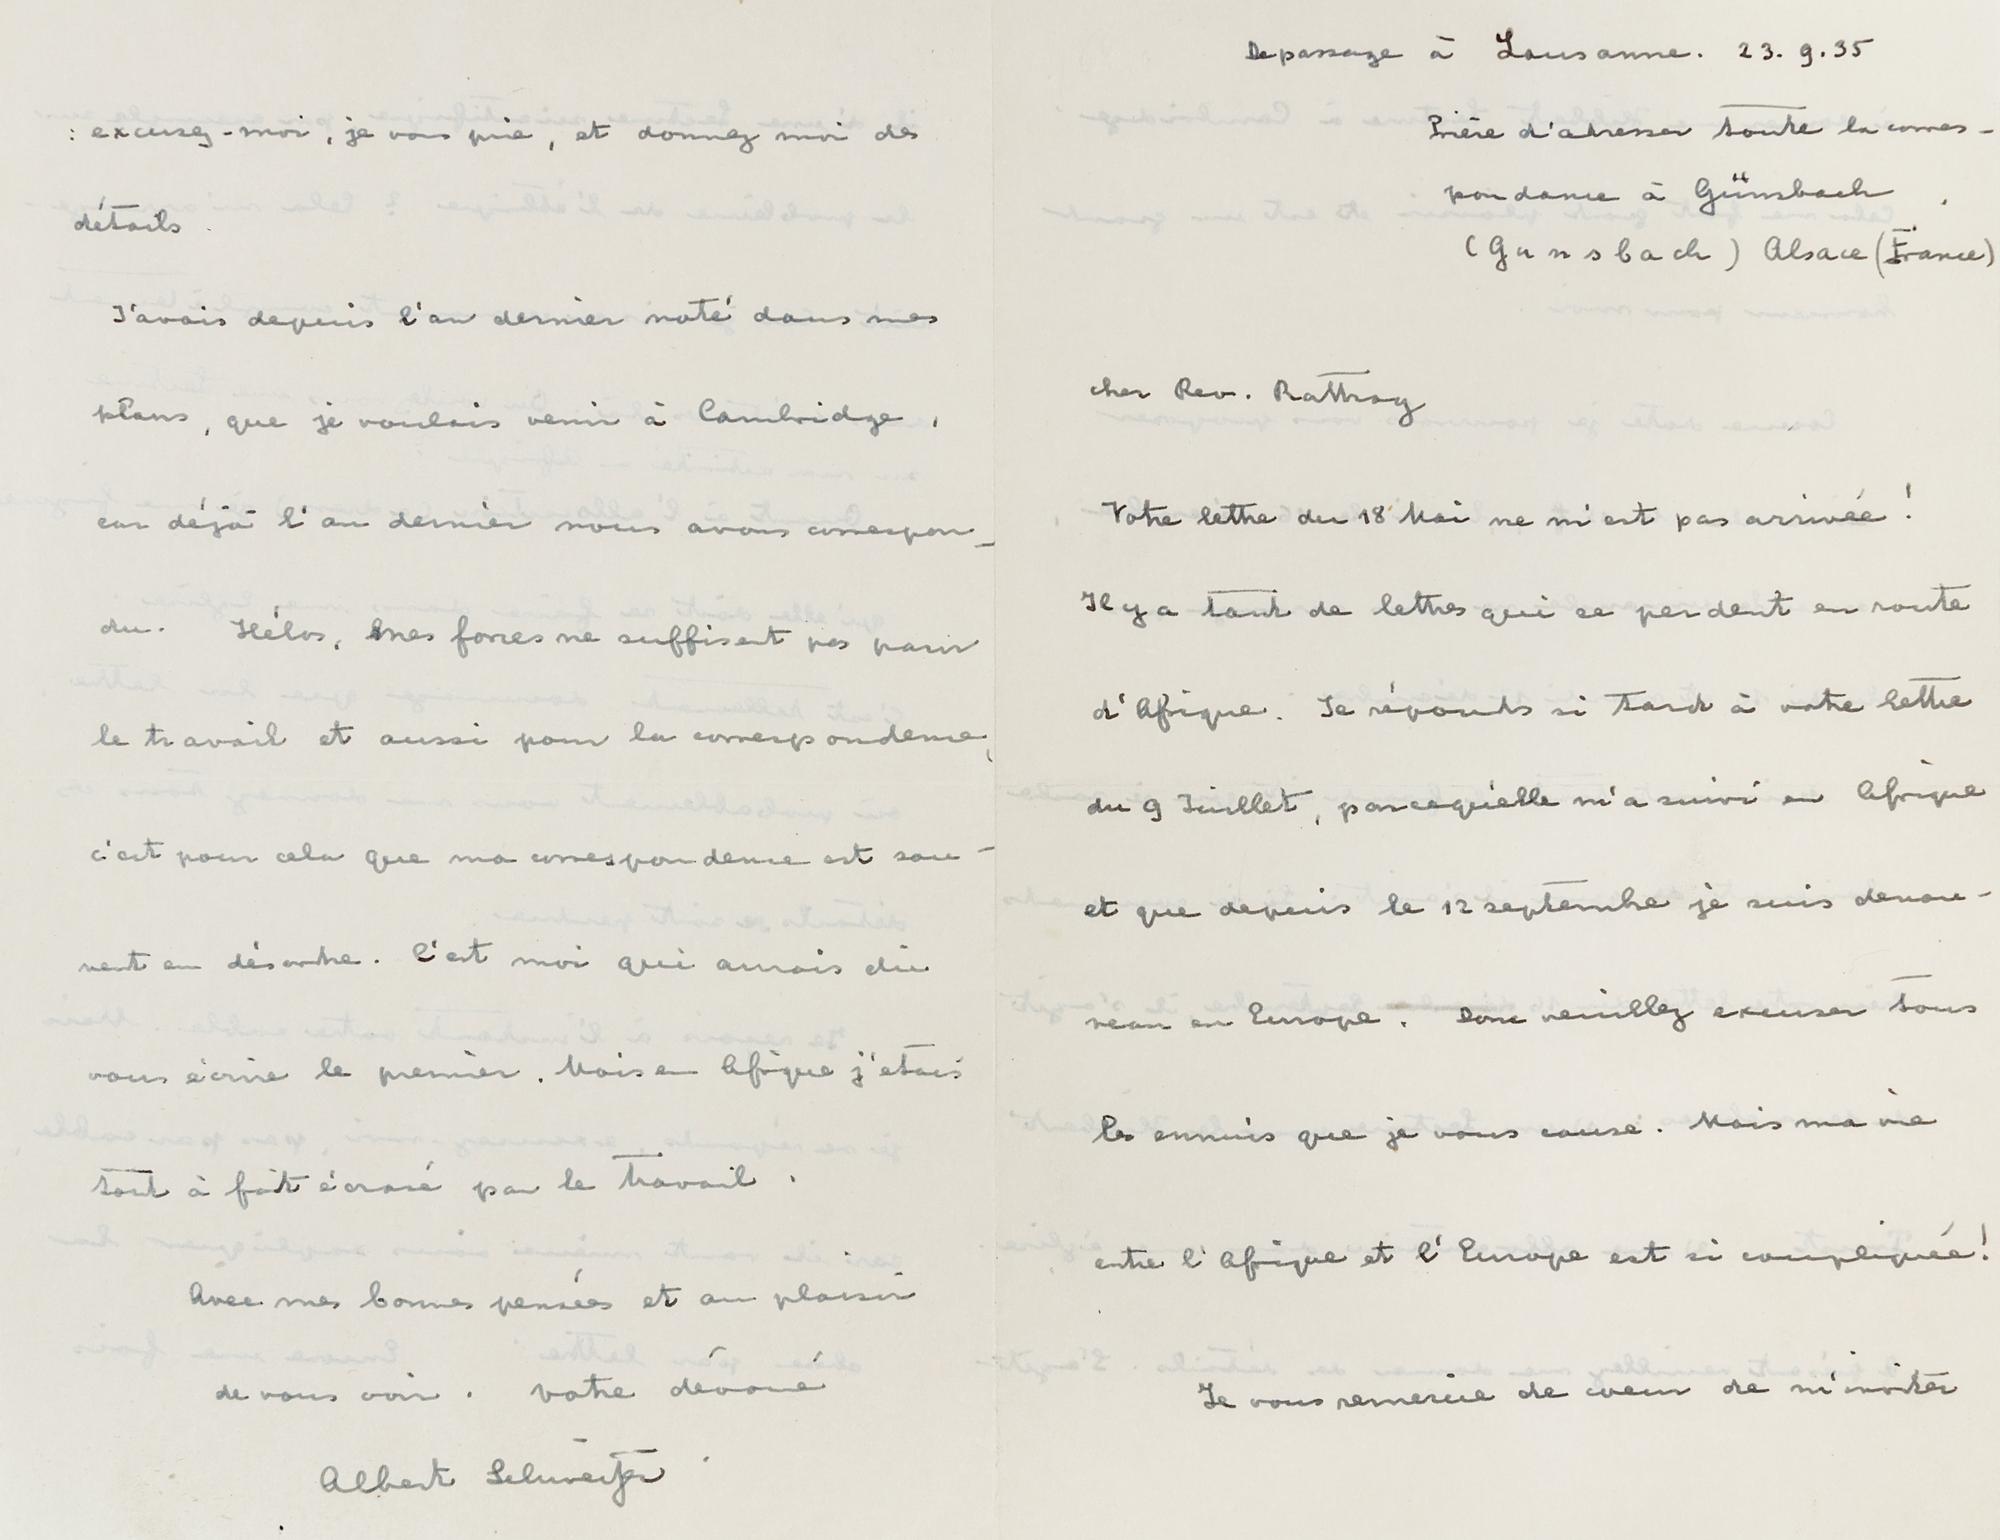 De passage à Lausanne. 23. 9. 35
Prière d'adresser toute la corres-
pondance à Günsbach
(Gunsbach) Alsace (France)
cher Rev. Rattray
Votre lettre du 18 Mai ne m'est pas arrivée !
Il y a tant de lettres qui se perdent en route
d'Afrique. Je réponds si tard à votre lettre
du 9 Juillet, parcequ'elle m'a suivi en Afrique
et que depuis le 12 septembre je suis denou-
veau en Europe. Donc veuillez excuser tous
les ennuis que je vous cause. Mais ma vie
entre l'Afrique et l'Europe est si compliquée !
Je vous remercie de coeur de m'inviter
: excusez-moi, je vous prie, et donnez moi des
détails.
J'avais depuis l'an dernier noté dans mes
plans, que je voulais venir à Cambridge,
car déjà l'an dernier nous avons correspon-
du. Hélas, mes forces ne suffisent pas pour
le travail et aussi pour la correspondence,
c'est pour cela que ma correspondence est sou-
vent en désordre. C'est moi qui aurais dû
vous écrire le premier. Mais en Afrique j'etais
tout à fait écrasé par le travail.
Avec mes bonnes pensées et au plaisir
de vous voir. votre dévoué
Albert Schweitzer